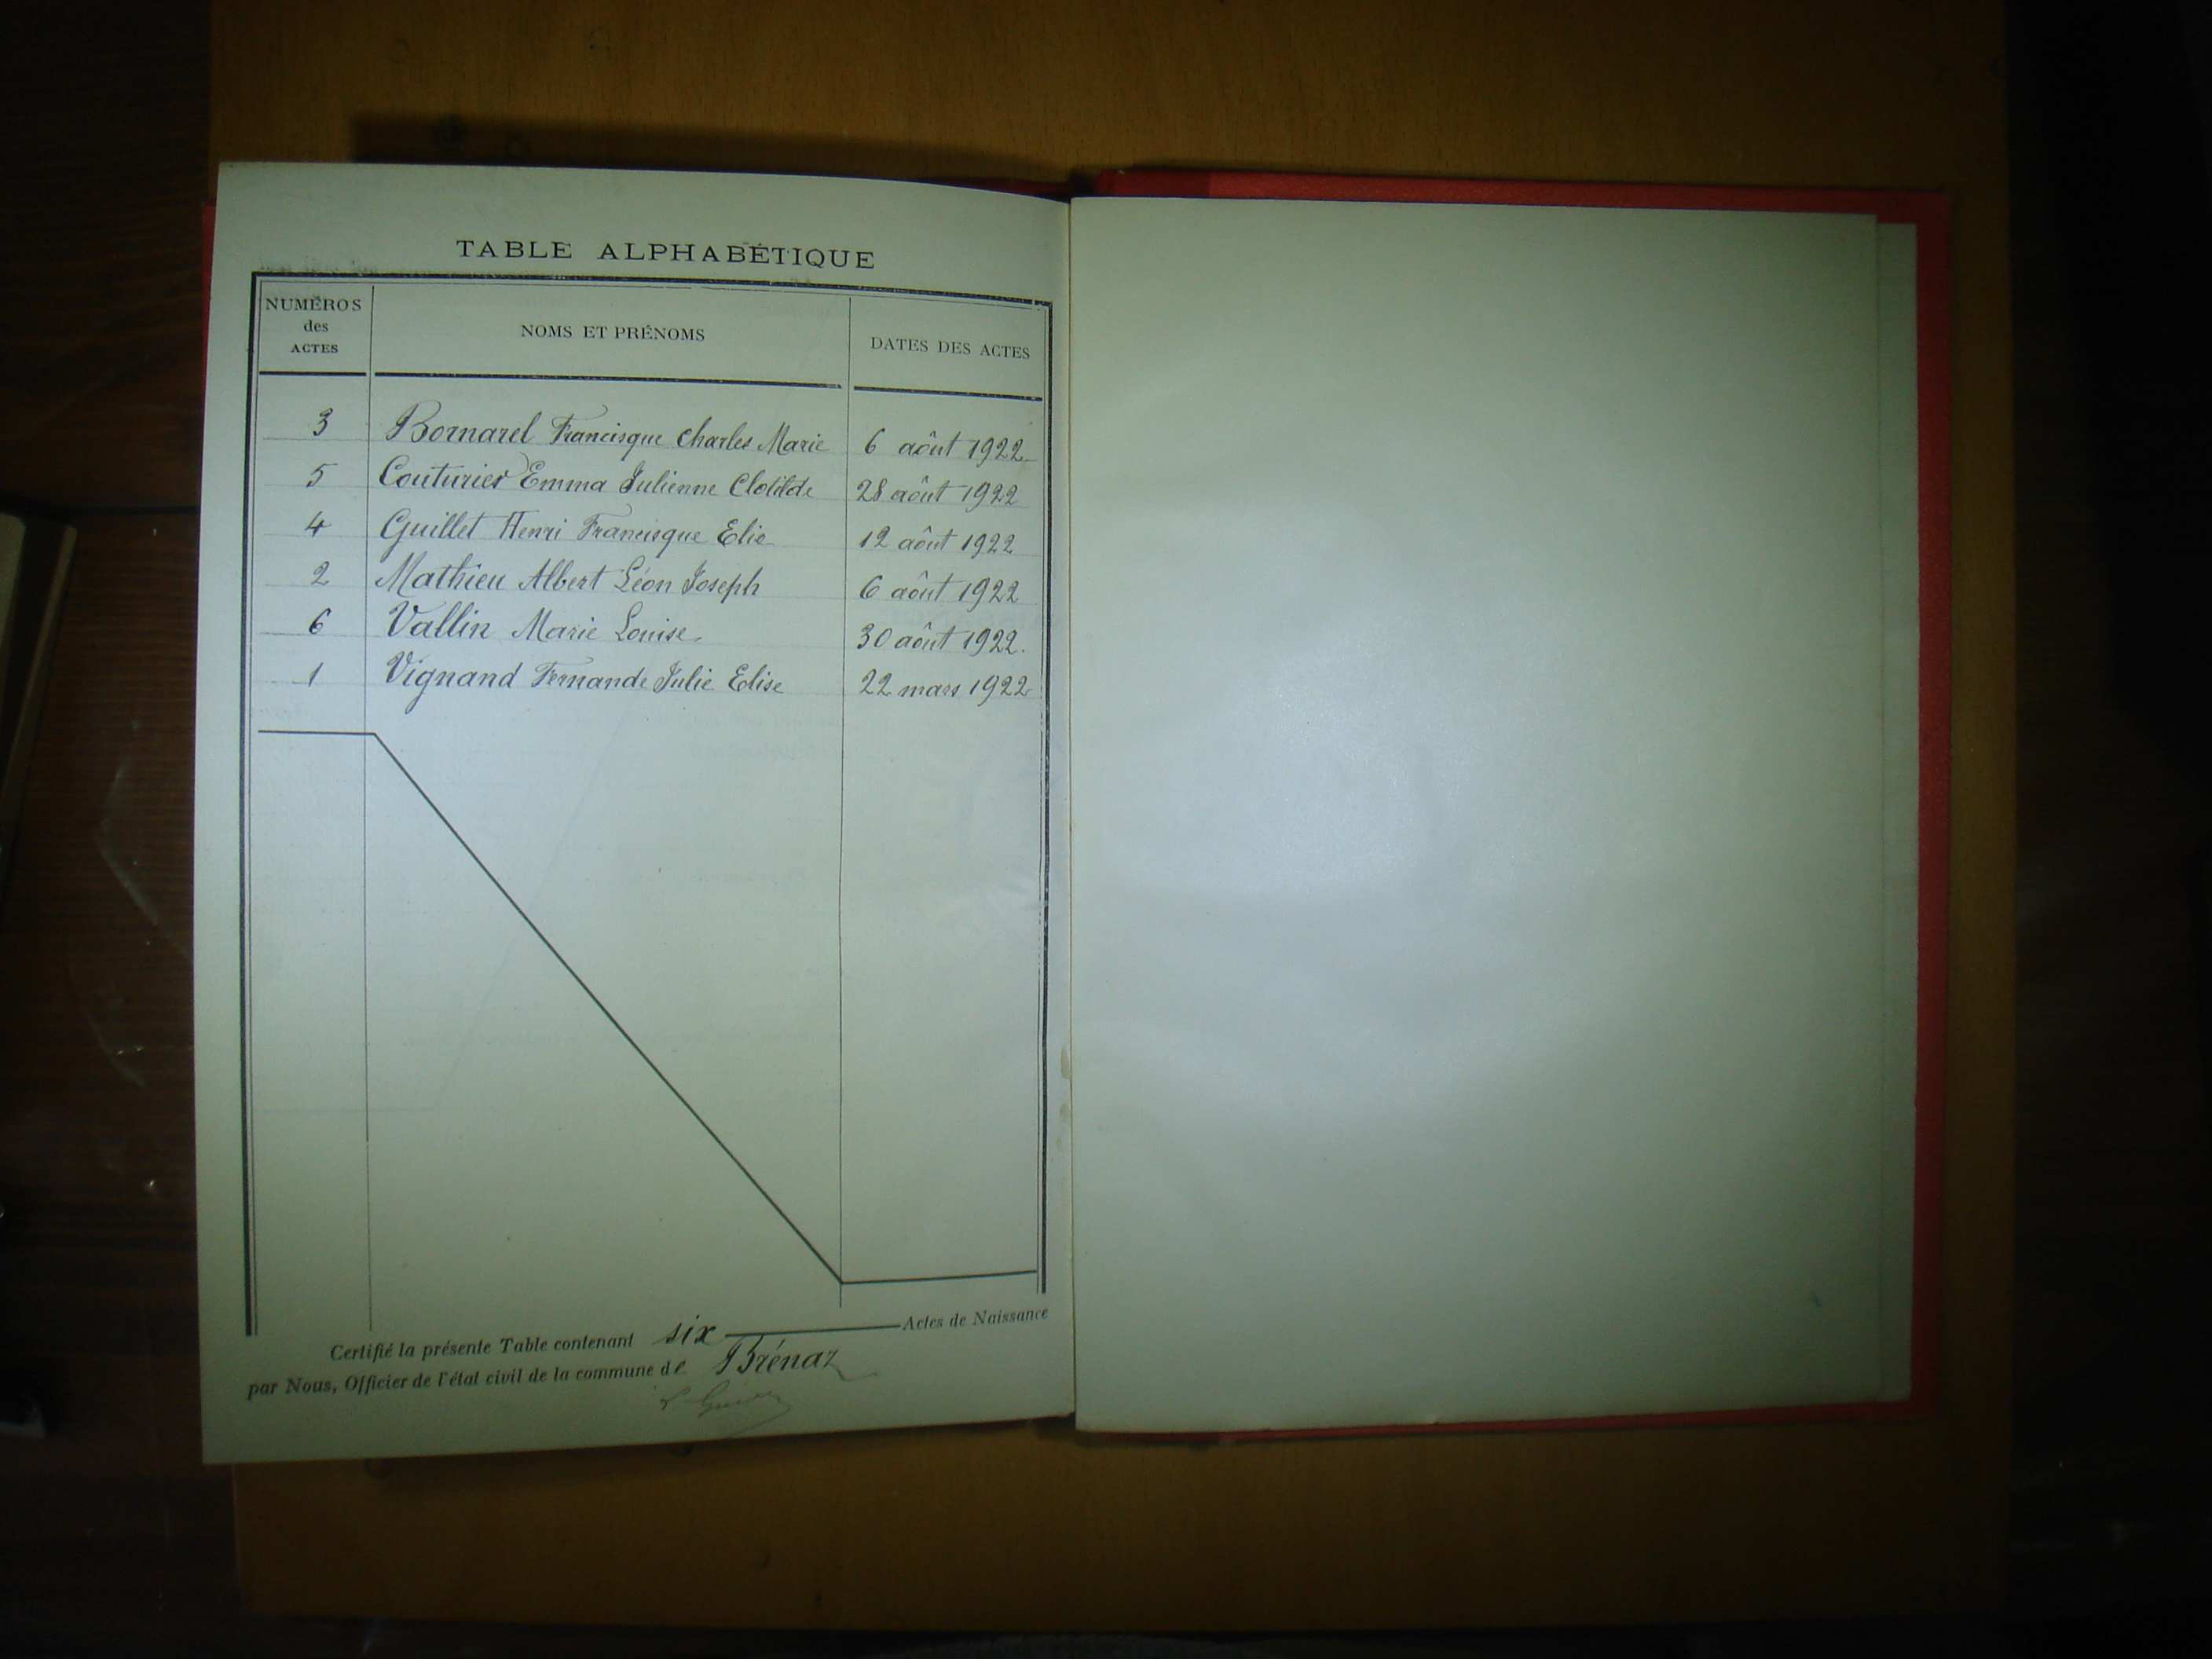 TABLE ALPHABÉTIQUE
NUMÉROS des ACTES NOMS ET PRÉNOMS DATES DES ACTES
3 Bornarel Francisque Charles Marie 6 août 1922
5 Couturier Emma Julienne Clotilde 28 août 1922
4 Guillet Henri Francisque Elie 12 août 1922
2 Mathieu Albert Léon Joseph 6 août 1922
6 Vallin Marie Louise 30 août 1922.
1 Vignand Fernande Julie Elise 22 mars 1922
Certifié la présente Table contenant six Actes de Naissance
par Nous, Officier de l'état civil de la commune de Brénaz